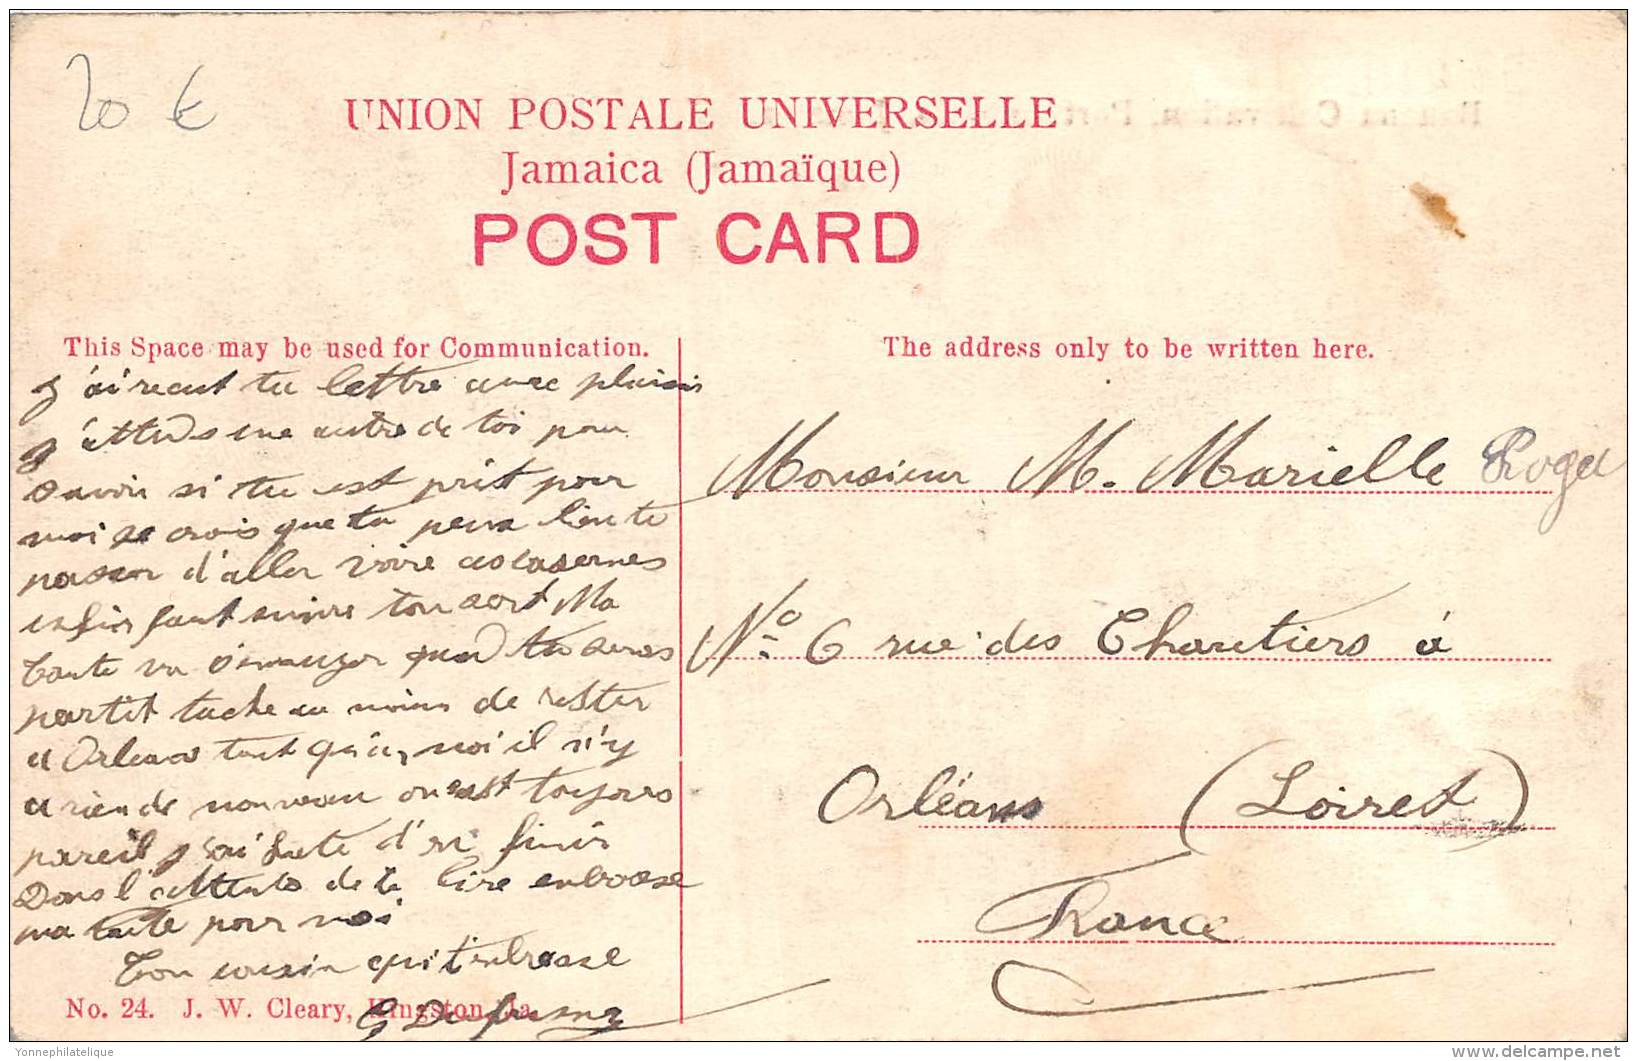 20 €
UNION POSTALE UNIVERSELLE
Jamaica (Jamaïque)
POST CARD
This Space may be used for Communication.
j'ai recut ta lettre avec plaisir
j'attends une autre de toi pour
savoir si tu est prit pour
moi je crois que tu peux bien te
passer d'aller voire ces casernes
enfin faut suivre ton sort Ma
tante va s'ennuyer quand tu seras
partit tache au moins de rester
a Orleans tant qu'a moi il n'y
a rien de nouveau on est toujours
pareil j'ai hate d'en finir
Dans l'attente de te lire embrasse
ma tante pour moi
Ton cousin qui t'embrasse
G
The address only to be written here.
Monsieur M. Marielle Roger
No 6 rue des Chantiers à
Orléans (Loiret)
France
No. 24. J. W. Cleary, Kingston, Ja.
Yonnephilatelique
delcampe.net